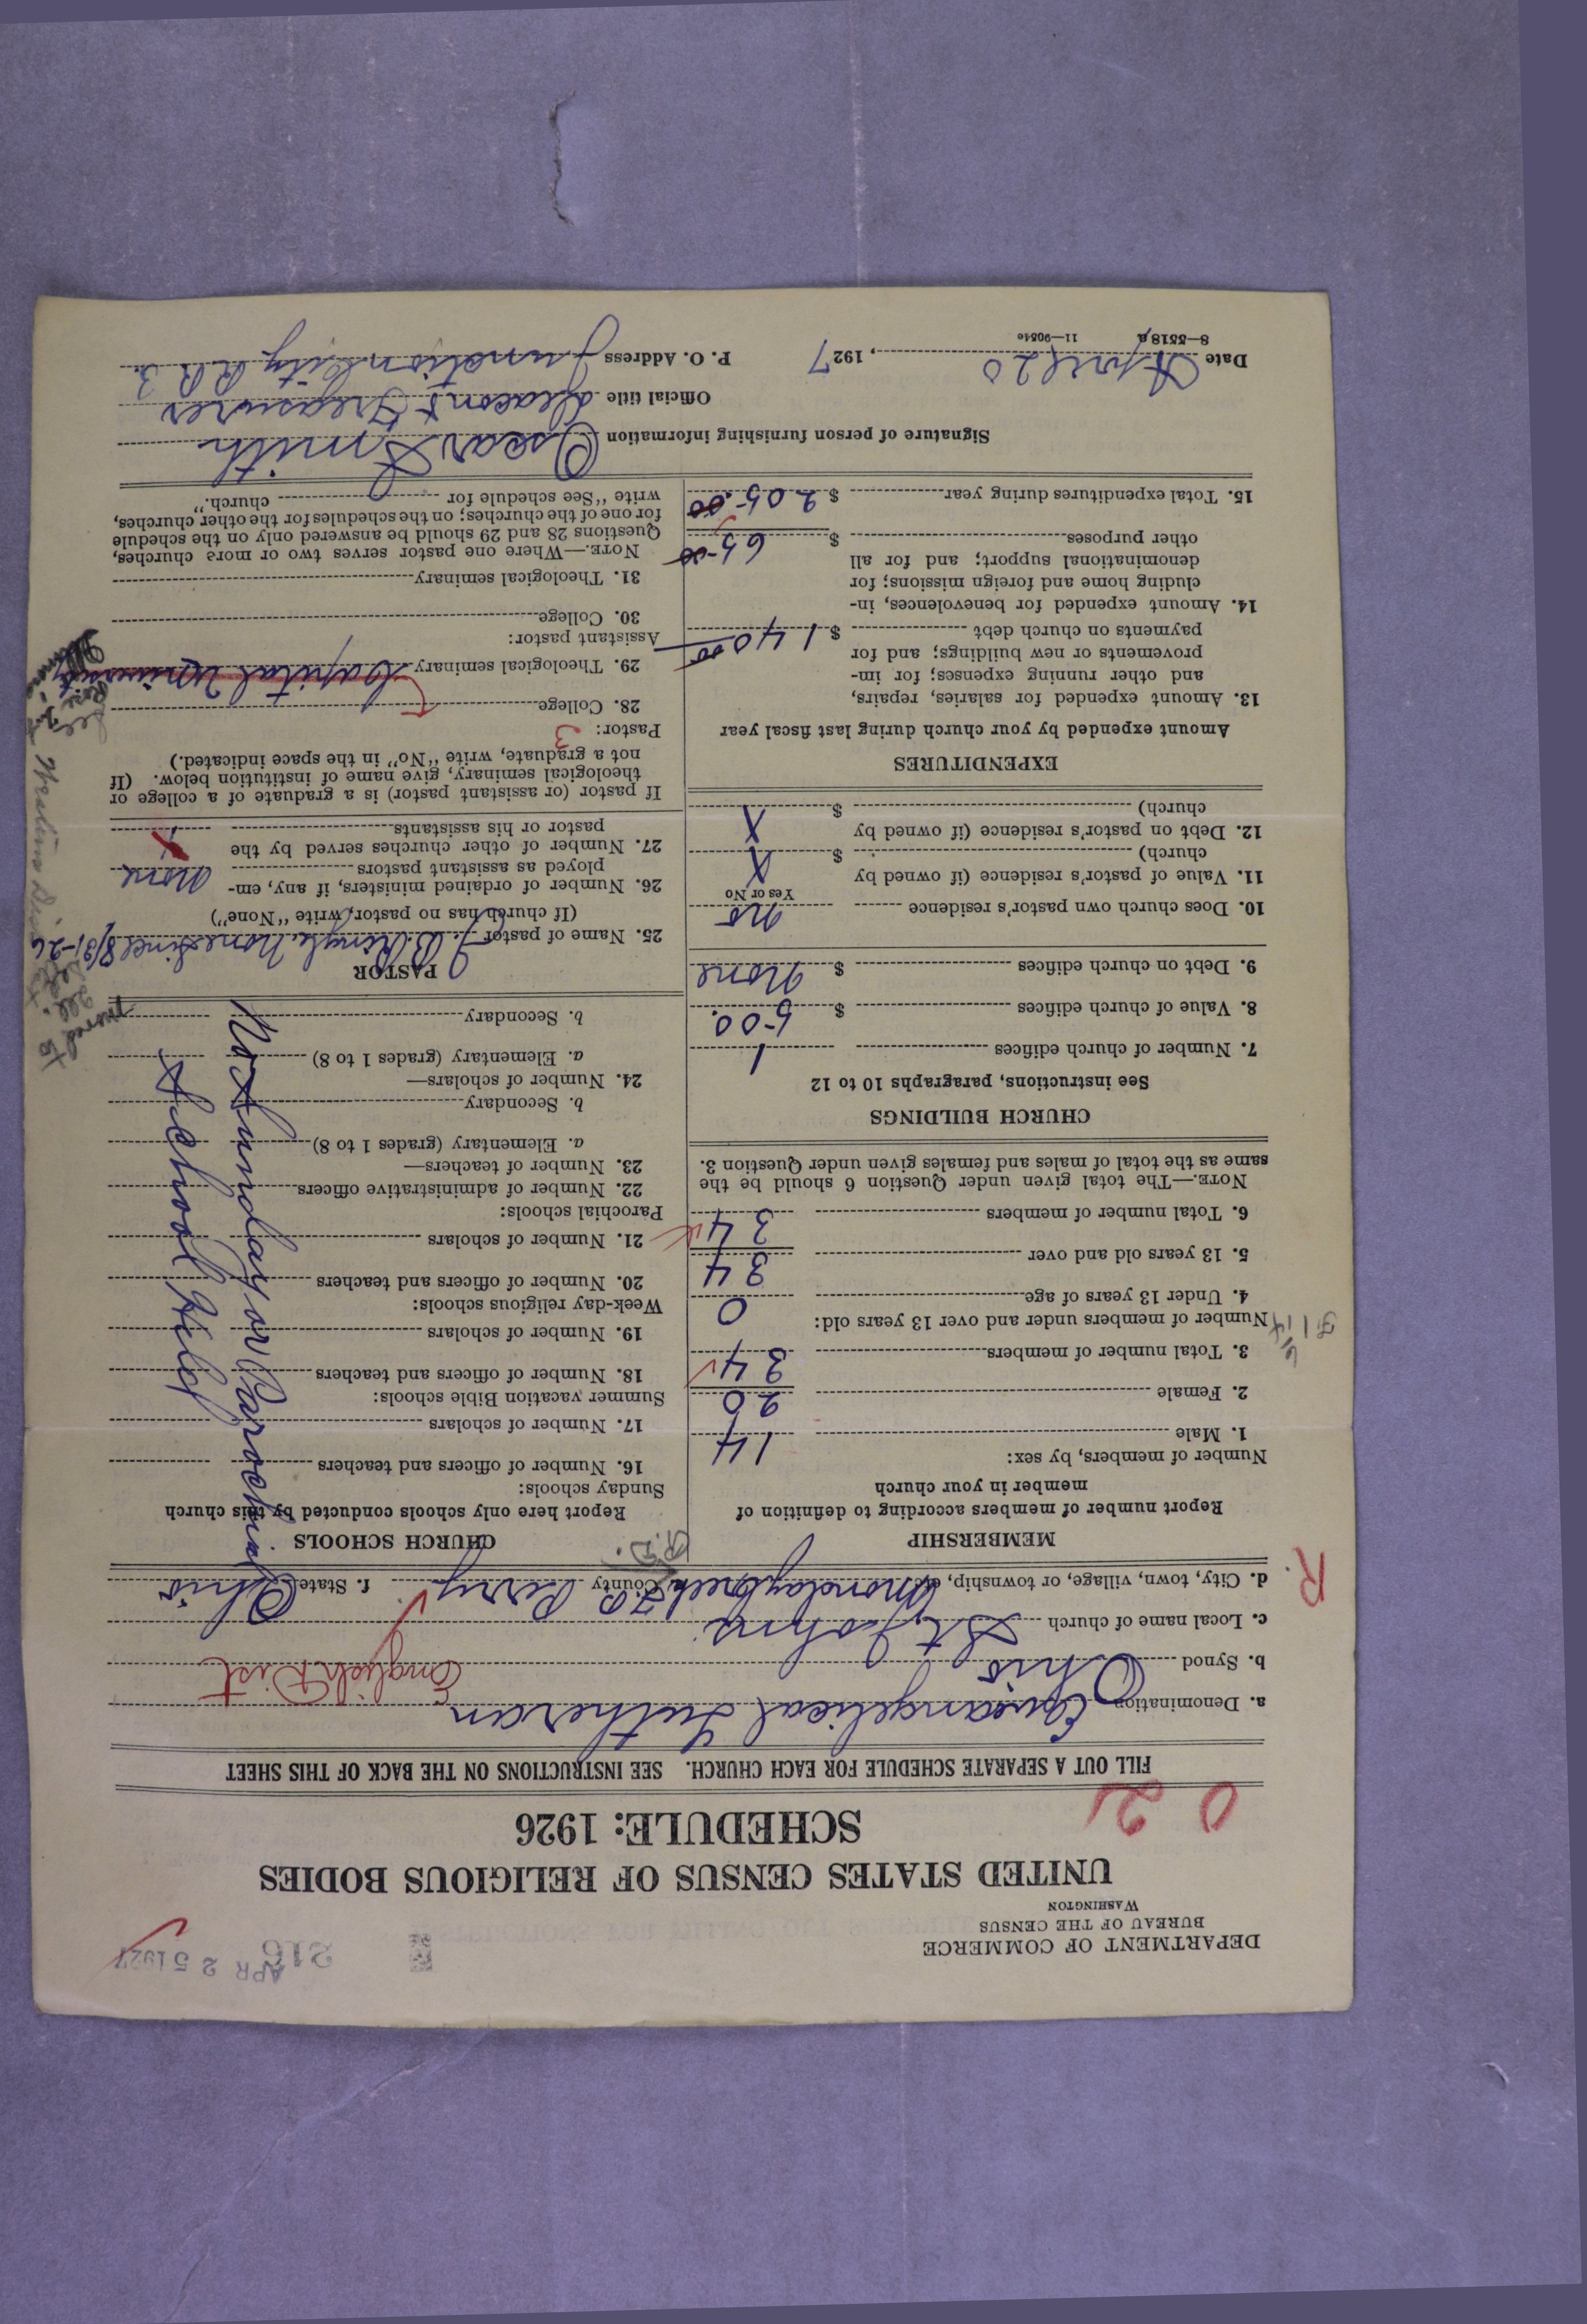 DEPARTMENT OF COMMERCE
BUREAU OF THE CENSUS
WASHINGTON
216
APR 25 1927
UNITED STATES CENSUS OF RELIGIOUS BODIES
SCHEDULE: 1926
0 2
FILL OUT A SEPARATE SCHEDULE FOR EACH CHURCH. SEE INSTRUCTIONS ON THE BACK OF THIS SHEET
a. Denomination Evangelical Lutheran
b. Synod Ohio English Dist
c. Local name of church St Johns
d. City, town, village, or township, etc. Monday Creek T.P. County Perry f. State Ohio
R.
R.D.
MEMBERSHIP
Report number of members according to definition of
member in your church
Number of members, by sex:
1. Male 14
2. Female 20
3. Total number of members 34
Number of members under and over 13 years old:
4. Under 13 years of age 0
5. 13 years old and over 34
6. Total number of members 34
NOTE.—The total given under Question 6 should be the
same as the total of males and females given under Question 3.
CHURCH BUILDINGS
See instructions, paragraphs 10 to 12
7. Number of church edifices 1
8. Value of church edifices $ 500.
9. Debt on church edifices $ None
10. Does church own pastor's residence no
Yes or No
11. Value of pastor's residence (if owned by
church) $ X
12. Debt on pastor's residence (if owned by
church) $ X
EXPENDITURES
Amount expended by your church during last fiscal year
13. Amount expended for salaries, repairs,
and other running expenses; for im-
provements or new buildings; and for
payments on church debt $ 140.00
14. Amount expended for benevolences, in-
cluding home and foreign missions; for
denominational support; and for all
other purposes $ 65.00
15. Total expenditures during year $ 205.00
CHURCH SCHOOLS
Report here only schools conducted by this church
Sunday schools:
16. Number of officers and teachers
17. Number of scholars
Summer vacation Bible schools:
18. Number of officers and teachers
19. Number of scholars
Week-day religious schools:
20. Number of officers and teachers
21. Number of scholars
Parochial schools:
22. Number of administrative officers
23. Number of teachers—
a. Elementary (grades 1 to 8)
b. Secondary
24. Number of scholars—
a. Elementary (grades 1 to 8)
b. Secondary
No Sunday or Parochial
School Held
PASTOR
25. Name of pastor J. B. Kingle None Since 8/31-26
(If church has no pastor, write "None")
26. Number of ordained ministers, if any, em-
ployed as assistant pastors None
27. Number of other churches served by the
pastor or his assistants
If pastor (or assistant pastor) is a graduate of a college or
theological seminary, give name of institution below. (If
not a graduate, write "No" in the space indicated.)
Pastor: 3
28. College
29. Theological seminary Capital University
Assistant pastor:
30. College
31. Theological seminary
NOTE.—Where one pastor serves two or more churches,
Questions 28 and 29 should be answered only on the schedule
for one of the churches; on the schedules for the other churches,
write "See schedule for church."
moved to
Signature of person furnishing information Oscar Smith
Official title Deacon & Treasurer
Date April 20, 1927 P. O. Address Junction City R.R. 3.
8—5518a 11—9054c